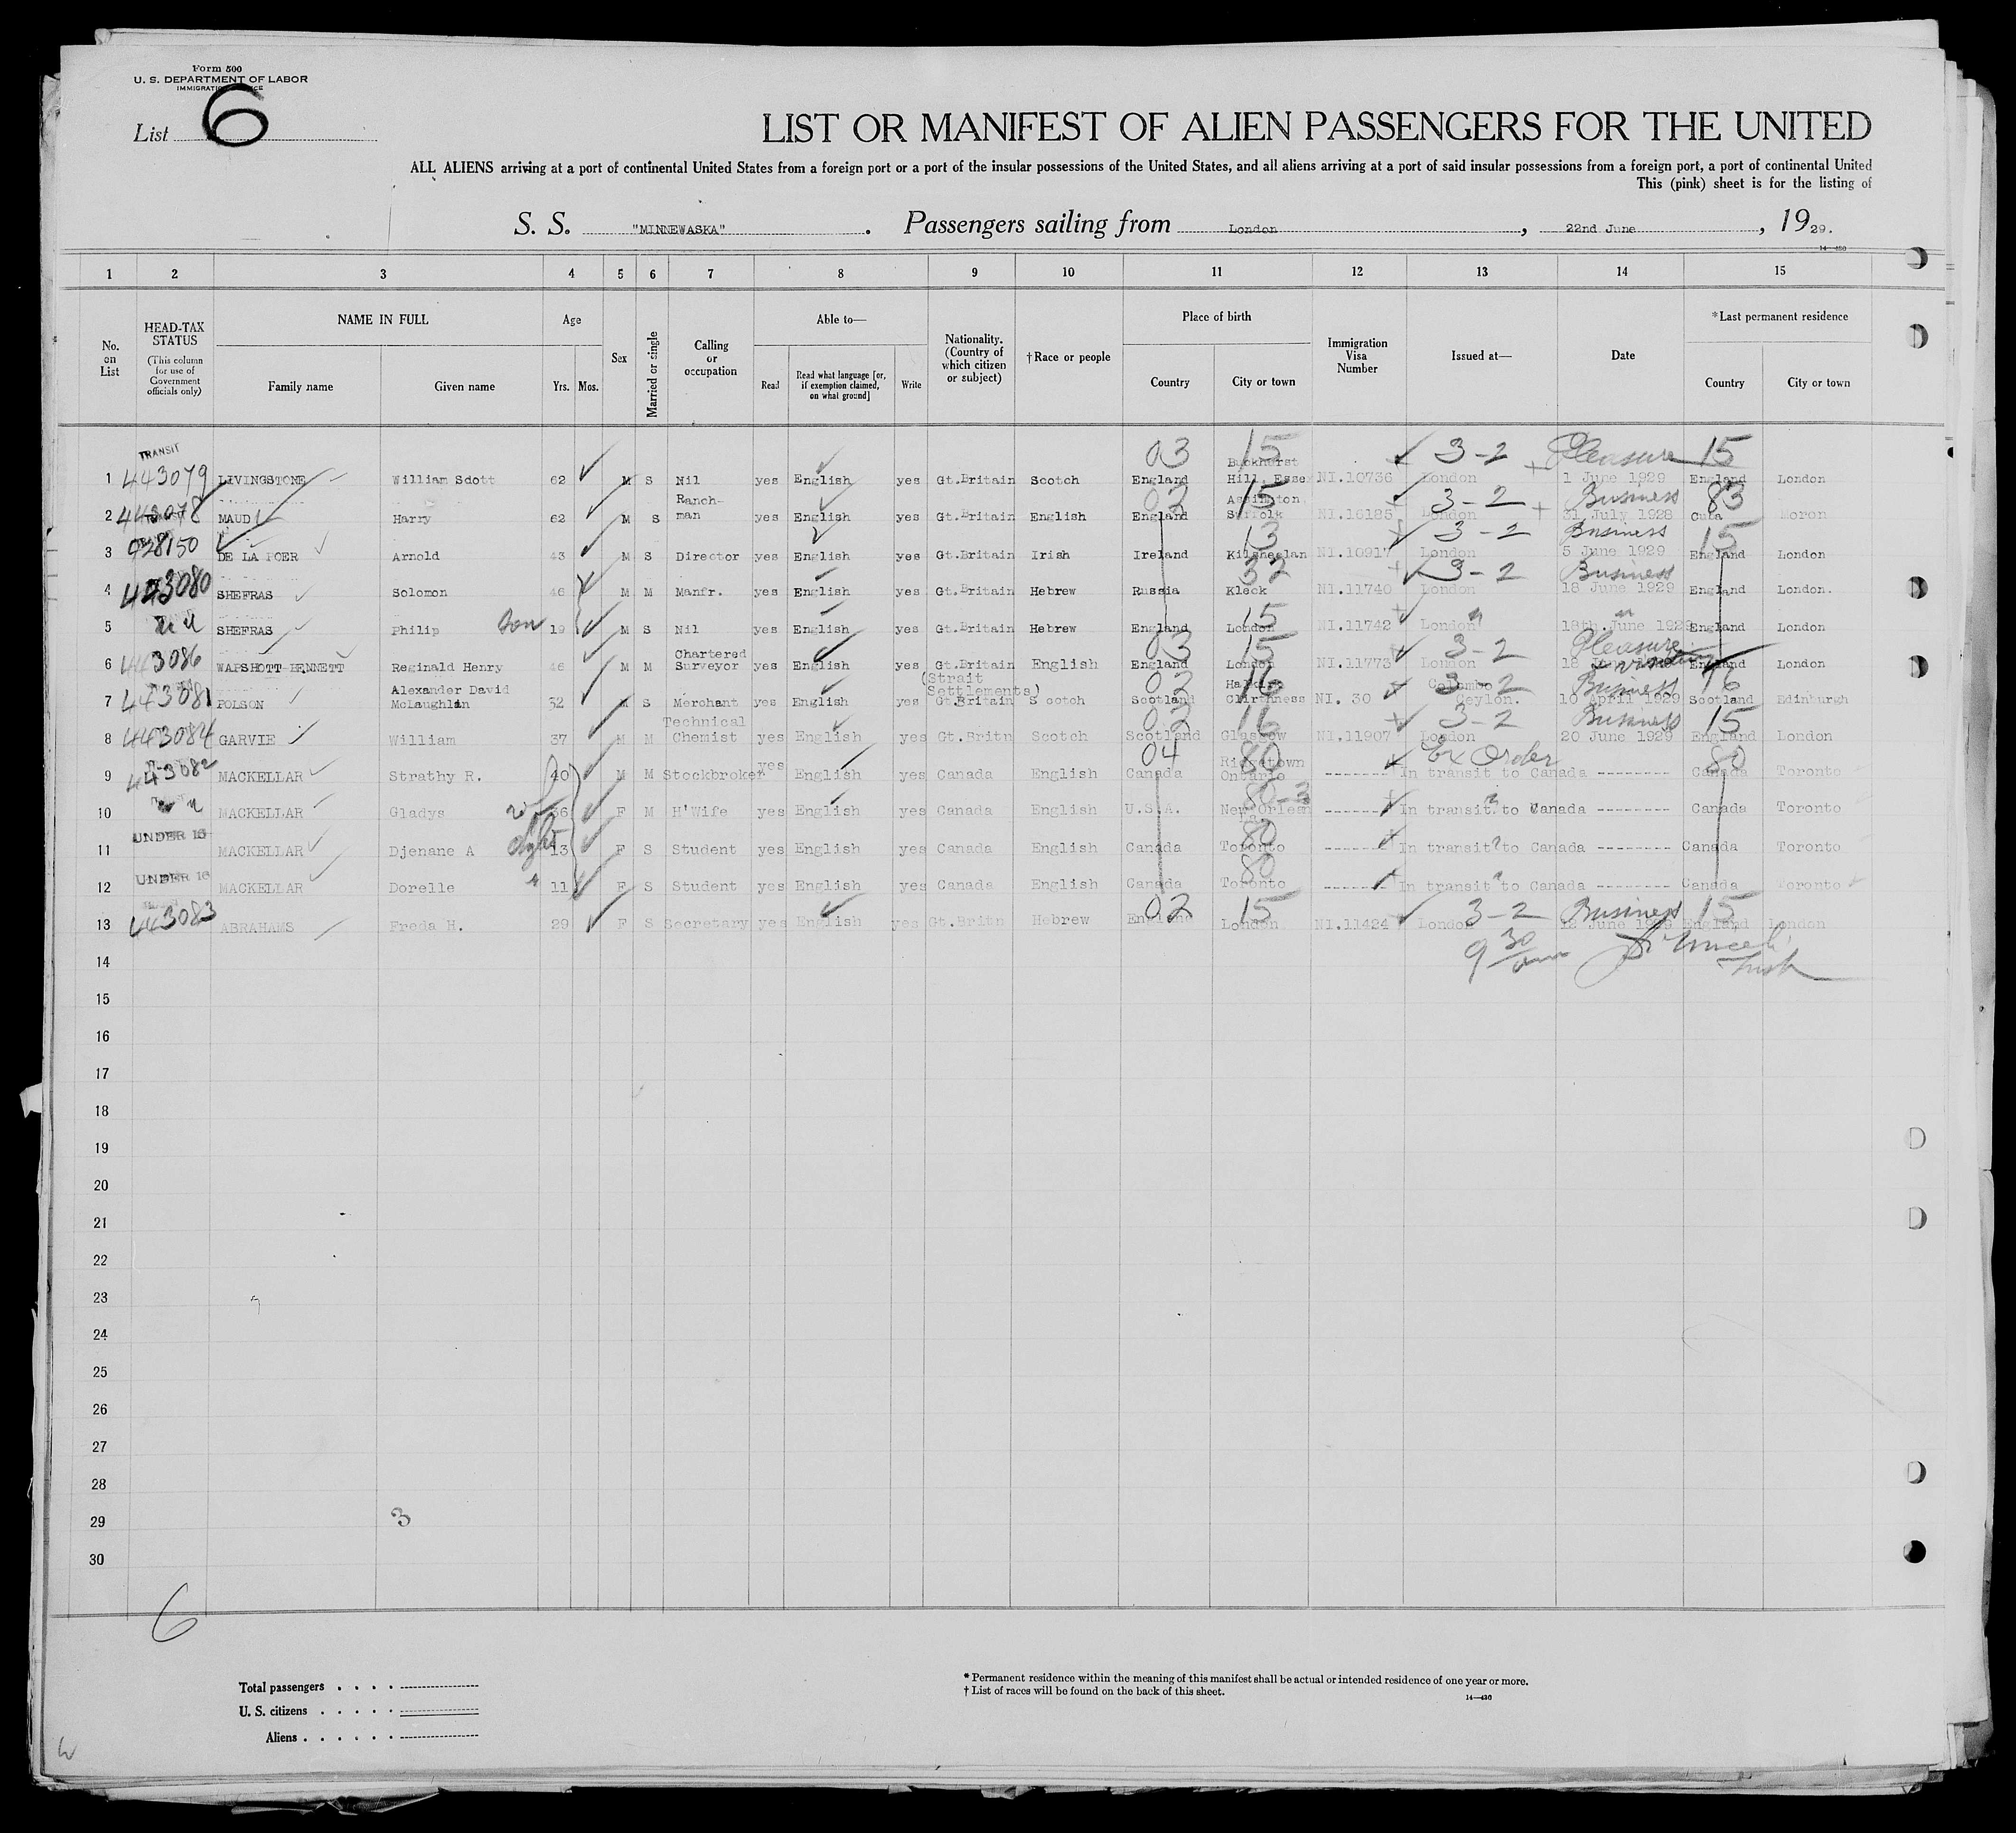 Form 500
U. S. DEPARTMENT OF LABOR
List 6
LIST OR MANIFEST OF ALIEN PASSENGERS FOR THE UNITED
ALL ALIENS arriving at a port of continental United States from a foreign port or a port of the insular possessions of the United States, and all aliens arriving at a port of said insular possessions from a foreign port, a port of continental United
This (pink) sheet is for the listing of
S. S. "MINNEWASKA". Passengers sailing from London, 22nd June, 1929.
1 2 3 4 5 6 7 8 9 10 11 12 13 14 15
No. on List
HEAD-TAX STATUS (This column for use of Government officials only)
NAME IN FULL Family name Given name
Age Yrs. Mos.
Sex
Married or single
Calling or occupation
Able to— Read Read what language [or, if exemption claimed, on what ground] Write
Nationality. (Country of which citizen or subject)
†Race or people
Place of birth Country City or town
Immigration Visa Number
Issued at—
Date
*Last permanent residence Country City or town
TRANSIT 03 15 3-2 Pleasure 15
1 443079 LIVINGSTONE William Sdott 62 M S Nil yes English yes Gt.Britain Scotch England Buckhurst Hill, Esse NI.10736 London 1 June 1929 England London
02 15 3-2 Business 83
2 443078 MAUD Harry 62 M S Ranch-man yes English yes Gt.Britain English England Assington Suffolk NI.16185 London 31 July 1928 Cuba Moron
13 3-2 Business 15
3 028150 DE LA POER Arnold 43 M S Director yes English yes Gt.Britain Irish Ireland NI.10917 London 5 June 1929 England London
32 3-2 Business
4 443080 SHEFRAS Solomon 46 M M Manfr. yes English yes Gt.Britain Hebrew Russia Kleck NI.11740 London 18 June 1929 England London.
15
5 SHEFRAS Philip Son 19 M S Nil yes English yes Gt.Britain Hebrew England London NI.11742 London 18th.June 1929 England London
03 15 3-2 Pleasure
6 443086 WAPSHOTT-BENNETT Reginald Henry 46 M M Chartered Surveyor yes English yes Gt.Britain English England London NI.11773 London 18 England London
02 16 3-2 Business 16
7 443081 POLSON Alexander David McLaughlin 32 M S Merchant yes English yes (Strait Settlements) Gt.Britain S cotch Scotland NI. 30 Colombo Ceylon. 10 April 1929 Scotland Edinburgh
02 16 3-2 Business 15
8 443084 GARVIE William 37 M M Technical Chemist yes English yes Gt.Britn Scotch Scotland Glasgow NI.11907 London 20 June 1929 England London
04 80 Ex Order 80
9 443082 MACKELLAR Strathy R. 40 M M Stockbroker yes English yes Canada English Canada Ontario ------- In transit to Canada -------- Canada Toronto
80-3
10 MACKELLAR Gladys 36 F M H'Wife yes English yes Canada English U.S.A. New Orlean ------- In transit to Canada -------- Canada Toronto
80
11 UNDER 16 MACKELLAR Djenane A 13 F S Student yes English yes Canada English Canada Toronto ------- In transit to Canada -------- Canada Toronto
80
12 UNDER 16 MACKELLAR Dorelle 11 F S Student yes English yes Canada English Canada Toronto ------- In transit to Canada -------- Canada Toronto
02 15 3-2 Business 15
13 443083 ABRAHAMS Freda H. 29 F S Secretary yes English yes Gt.Britn Hebrew England London NI.11424 London 12 June 1929 England London
14 9 30
15
16
17
18
19
20
21
22
23
24
25
26
27
28
29 3
30
6
Total passengers . . . .
U. S. citizens . . . . .
Aliens . . . . . .
* Permanent residence within the meaning of this manifest shall be actual or intended residence of one year or more.
† List of races will be found on the back of this sheet.
14—430